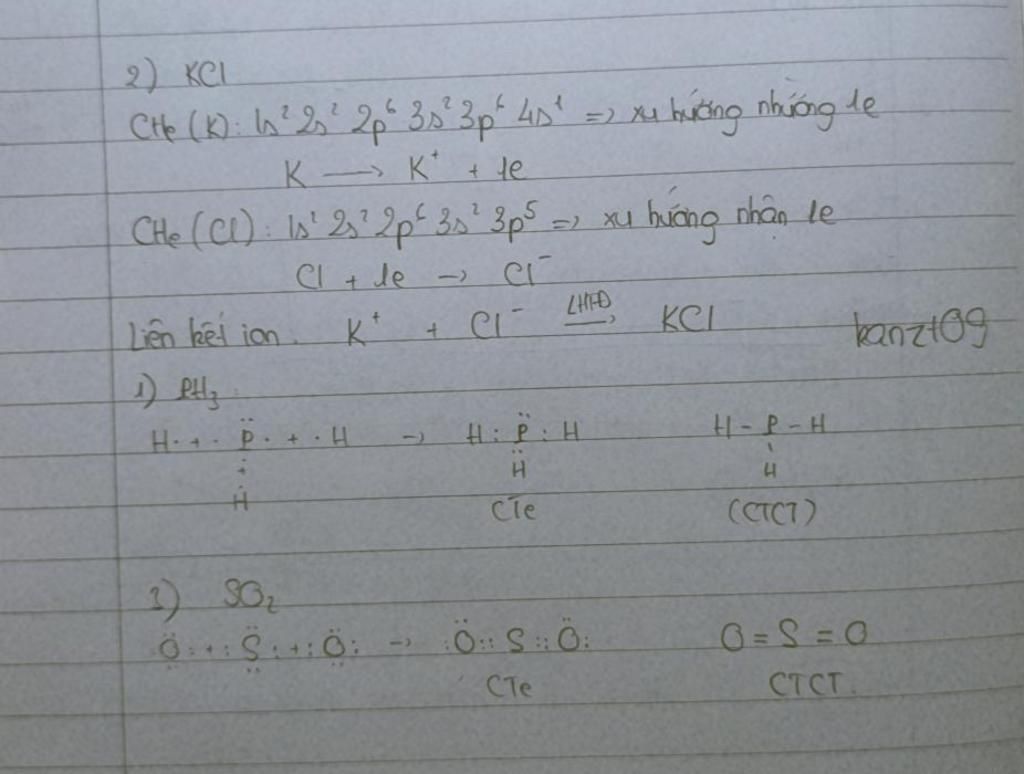 2) KCl
CHe (K): 1s² 2s² 2p⁶ 3s² 3p⁶ 4s¹ => xu hướng nhường 1e
K → K⁺ + 1e
CHe (Cl): 1s² 2s² 2p⁶ 3s² 3p⁵ => xu hướng nhận 1e
Cl + 1e → Cl⁻
Liên kết ion. K⁺ + Cl⁻ LHTĐ → KCl
kanzt09
1) PH₃
H· + ·P̈· + ·H → H : P̈ : H H - P - H
+ ¨ |
Ḣ H H
CTe (CTCT)
3) SO₂
:Ö: + :S̈: + :Ö: → :Ö :: S :: Ö: O = S = O
CTe CTCT